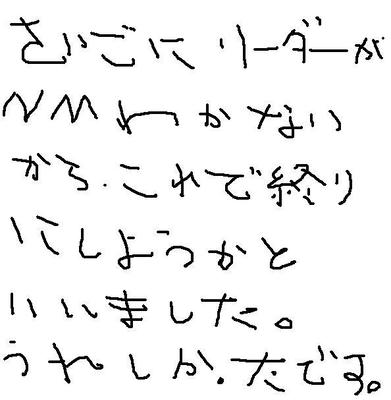 さいごにリーダーが
NMわかない
から.これで終り
にしようかと
いいました。
うれしか.たです。